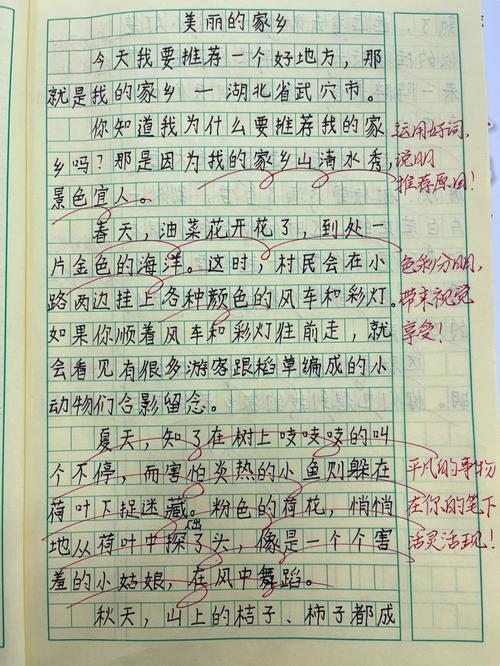 美丽的家乡
今天我要推荐一个好地方，那
就是我的家乡—湖北省武穴市。
你知道我为什么要推荐我的家
乡吗？那是因为我的家乡山清水秀，
景色宜人。
运用好词，
说明
推荐原因！
春天，油菜花开花了，到处一
片金色的海洋。这时，村民会在小
路两边挂上各种颜色的风车和彩灯。
如果你顺着风车和彩灯往前走，就
会看见有很多游客跟稻草编成的小
动物们合影留念。
色彩分明，
带来视觉
享受！
夏天，知了在树上吱吱吱的叫
个不停，而害怕炎热的小鱼则躲在
荷叶下捉迷藏。粉色的荷花，悄悄
地从荷叶中探出了头，像是一个个害
羞的小姑娘，在风中舞蹈。
平凡的事物
在你的笔下
活灵活现！
秋天，山上的桔子、柿子都成